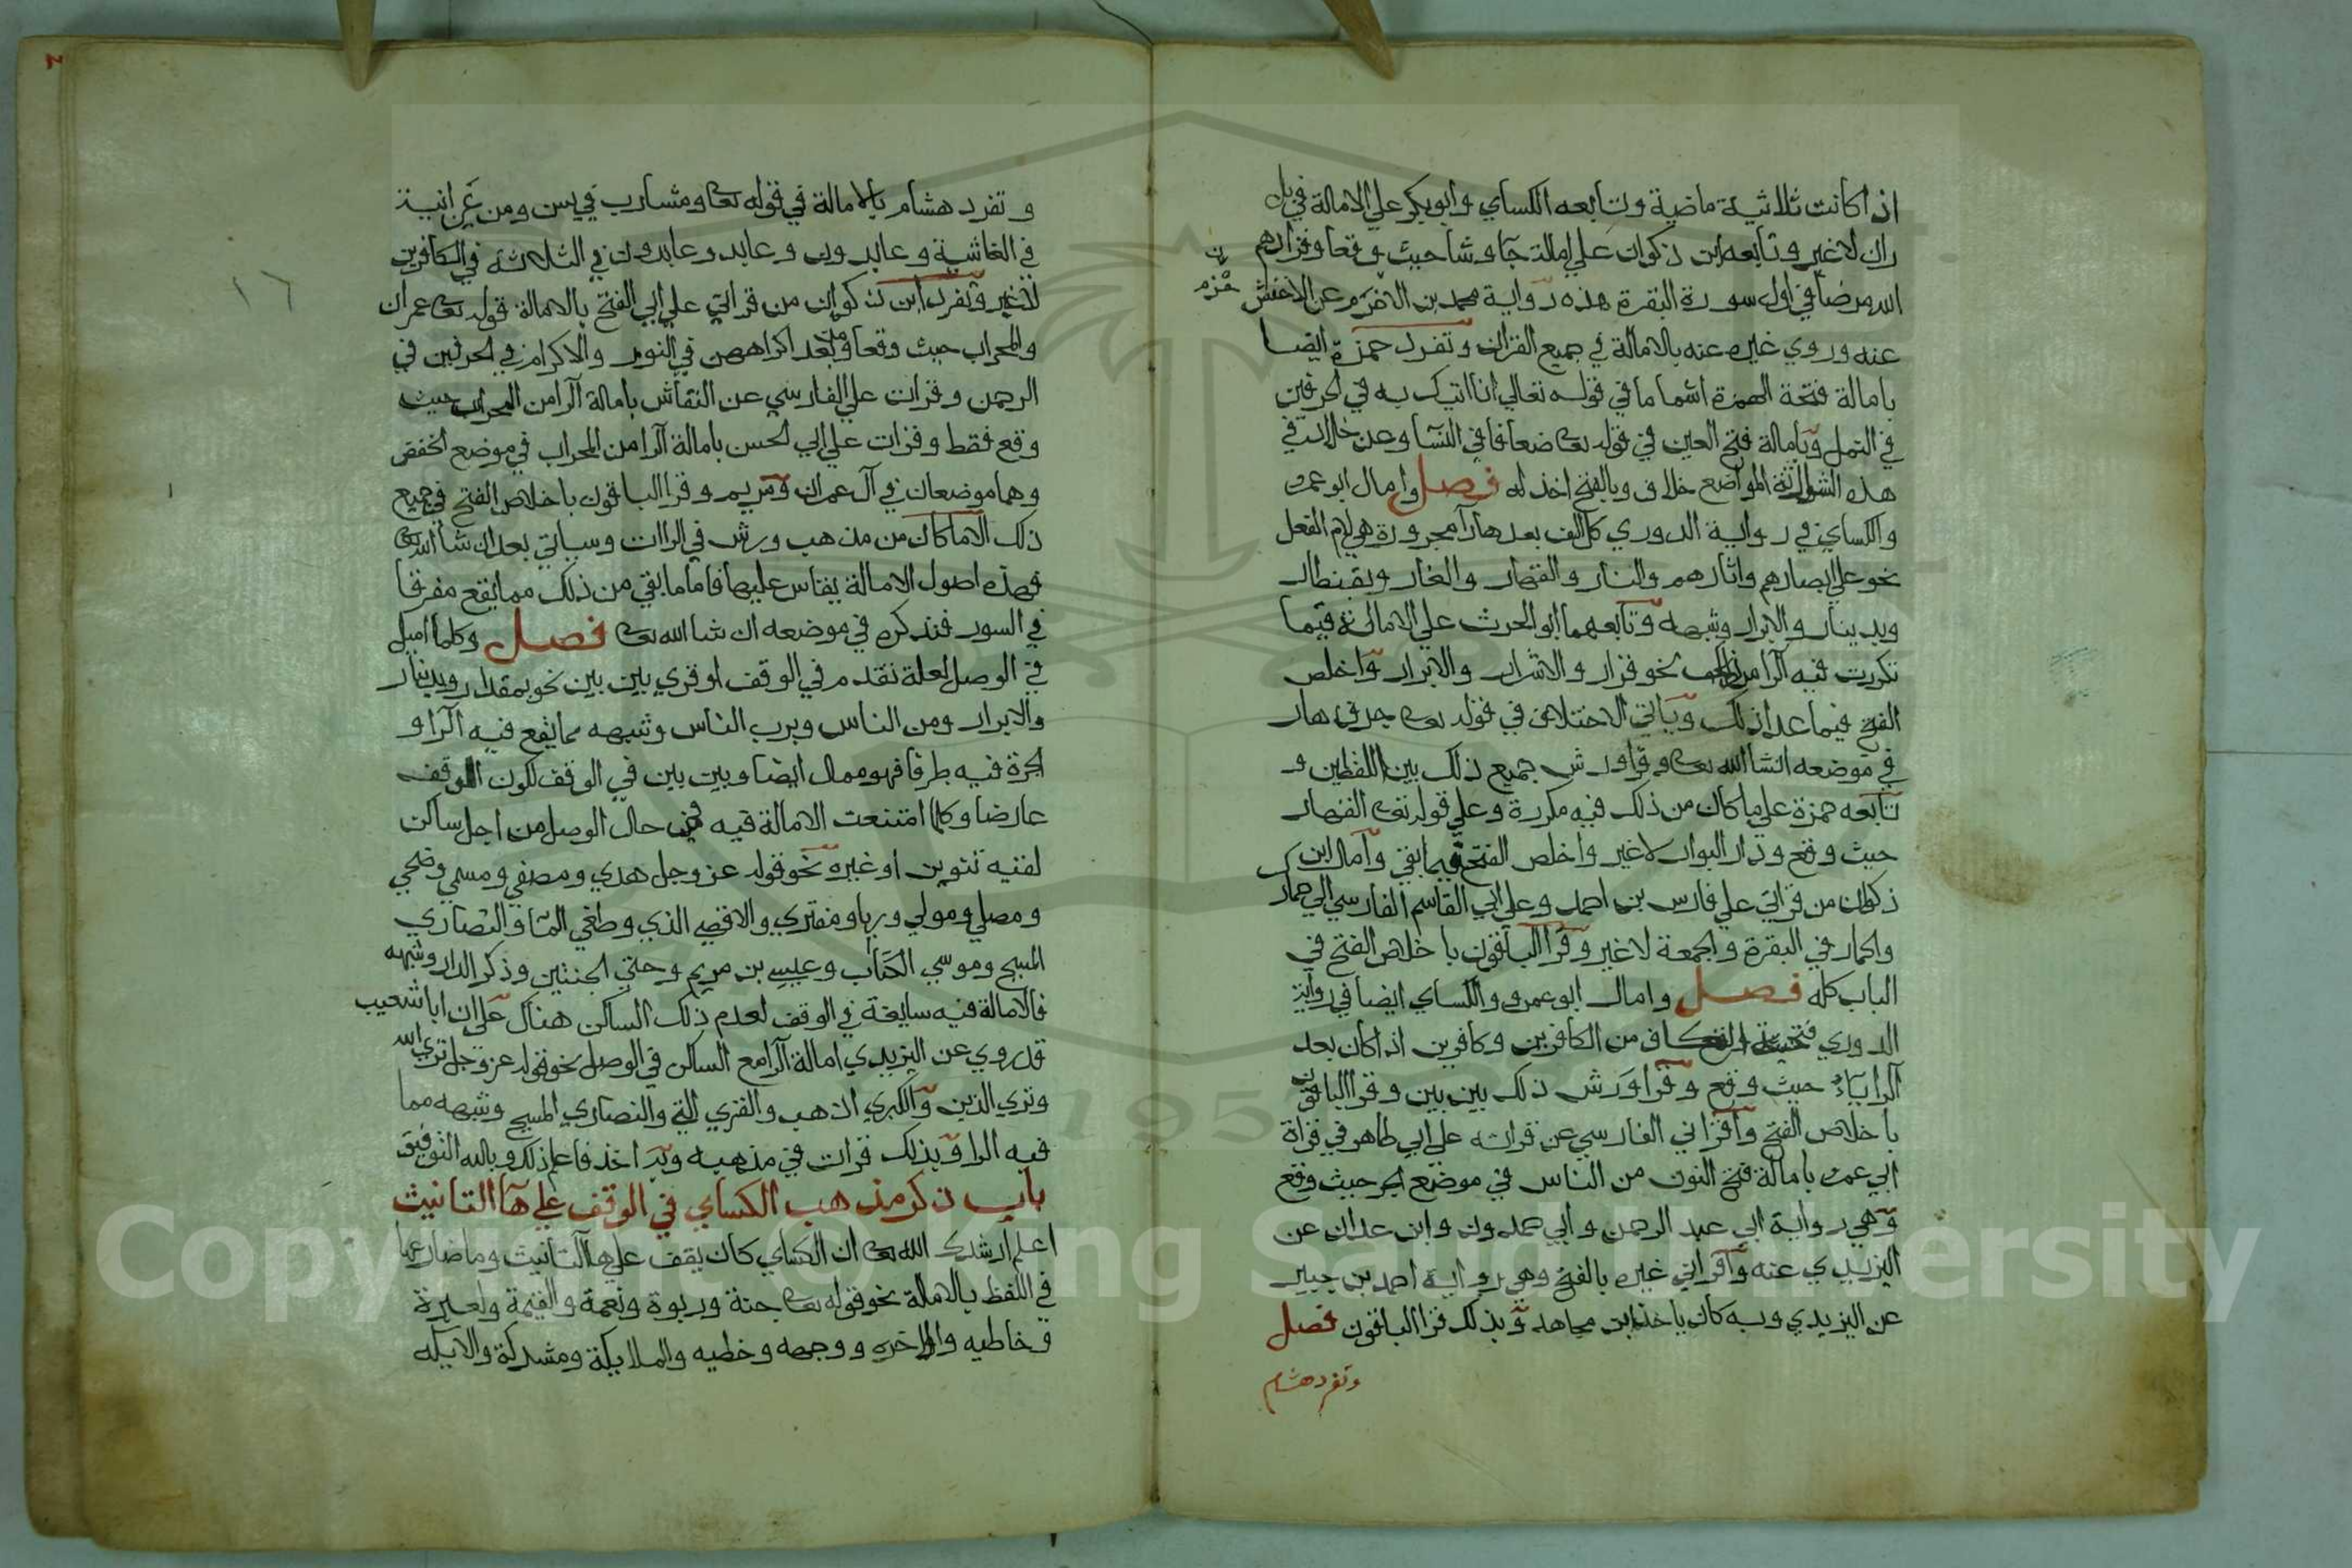 اذا كانت ثلاثية ماضية وتابعه الكساي وابو بكر علي الامالة في بل
ران لا غير وتابعه ابن ذكوان علي امالة جآ وشا حيث وقعا وفزادهم
الله مرضا في اول سورة البقرة هذه رواية محمد بن الاخرم عن الاخفش
عنه وروي غيره عنه بالامالة في جميع القران وتفرد حمزة ايضا
بامالة فتحة الهمزة اشماما في قوله تعالي انا اتيك به في الحرفين
في النمل وبامالة فتح العين في قوله تعا ضعافا في النسا وعن خلاد في
هذه المواضع خلاف وبالفتح اخذ له فصل وامال ابو عمرو
والكساي في رواية الدوري كل الف بعدها را مجرورة هي لام الفعل
نحو علي ابصارهم واثارهم والنار والقهار والغار وبقنطار
وبدينار والابرار وشبهه وتابعهما ابو الحرث علي الامالة فيما
تكررت فيه الرا من ذلك نحو قرار والاشرار والابرار واخلص
الفتح فيما عدا ذلك وياتي الاختلاف في قوله تعا جرف هار
في موضعه انشا الله تعا وقرا ورش جميع ذلك بين اللفظين و
تابعه حمزة علي ما كان من ذلك فيه مكررة وعلي قوله تعا القهار
حيث وقع ودار البوار لا غير واخلص الفتح فيما بقي وامال ابن
ذكوان من قراتي علي فارس بن احمد وعلي ابي القاسم الفارسي الي حمارك
والحمار في البقرة والجمعة لا غير وقرا الباقون باخلاص الفتح في
الباب كله فصل وامال ابو عمرو والكساي ايضا في رواية
الدوري فتحة الكاف من الكافرين وكافرين اذا كان بعد
الرا ياء حيث وقع وقرا ورش ذلك بين بين وقرا الباقون
باخلاص الفتح واقراني الفارسي عن قراته علي ابي طاهر في قراة
ابي عمرو بامالة فتح النون من الناس في موضع الجر حيث وقع
وهي رواية ابي عبد الرحمن وابي حمدون وابن سعدان عن
اليزيدي عنه واقراني غيره بالفتح وهي رواية احمد بن جبير
عن اليزيدي وبه كان ياخذ ابن مجاهد وبذلك قرا الباقون فصل
وتفرد هشام
١٦
وتفرد هشام بالامالة في قوله تعا ومشارب في يس ومن عين انية
في الغاشية وعابدون وعابد وعابدون في الثلاثة في الكافرين
لا غير وتفرد ابن ذكوان من قراتي علي ابي الفتح بالامالة قوله تعا عمران
والمحراب حيث وقعا ومن بعد اكراههن في النور والاكرام في الحرفين في
الرحمن وقرات علي الفارسي عن النقاش بامالة الرا من المحراب حيث
وقع فقط وقرات علي ابي الحسن بامالة الرا من المحراب في موضع الخفض
وهما موضعان في آل عمران ومريم وقرا الباقون باخلاص الفتح في جميع
ذلك الا ما كان من مذهب ورش في الراات وسياتي بعد ان شا الله تعا
فهذه اصول الامالة يقاس عليها فاما ما بقي من ذلك مما يقع مفرقا
في السور فنذكره في موضعه ان شا الله تعا فصل وكلما اميل
في الوصل لعلة تقدم في الوقف او قري بين بين نحو بمقدار وبدينار
والابرار ومن الناس وبرب الناس وشبهه مما يقع فيه الرا و
الجرة فيه طرفا فهو ممال ايضا وبين بين في الوقف لكون الوقف
عارضا وكلما امتنعت الامالة فيه في حال الوصل من اجل ساكن
لقيه تنوين او غيره نحو قوله عز وجل هدي ومصفي ومسمي وضحي
ومصلي ومولي وربا ومفتري والاقصي الذي وطغي الما والنصاري
المسيح وموسي الكتاب وعيسي بن مريم وجني الجنتين وذكر الدار وشبهه
فالامالة فيه سايغة في الوقف لعدم ذلك الساكن هناك علي ان ابا شعيب
قد روي عن اليزيدي امالة الرا مع الساكن في الوصل نحو قوله عز وجل نري الله
وتري الذين والكبري اذهب والقري التي والنصاري المسيح وشبهه مما
فيه الرا وبذلك قرات في مذهبه وبه اخذ فاعلم ذلك وبالله التوفيق
باب ذكر مذهب الكساي في الوقف علي هآ التانيث
اعلم ارشدك الله تعا ان الكساي كان يقف علي هآ التانيث وما ضارعها
في اللفظ بالامالة نحو قوله تعا جنة وربوة ونعمة والقيمة ولعبرة
وخاطيه والاخره ووجهه وخطيه والملايكة ومشركة والايكه
Copyright © King Saud University
1957